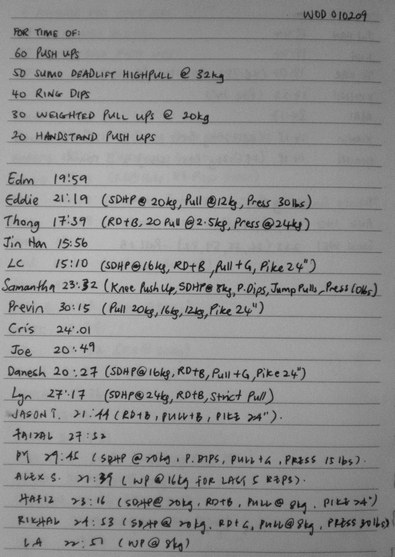 WOD 010209
FOR TIME OF:
60 PUSH UPS
50 SUMO DEADLIFT HIGHPULL @ 32kg
40 RING DIPS
30 WEIGHTED PULL UPS @ 20kg
20 HANDSTAND PUSH UPS
Edm 19:59
Eddie 21:19 (SDHP@20kg, Pull @12kg, Press 30lbs)
Thong 17:39 (RD+B, 20 Pull @2.5kg, Press@24kg)
Jin Han 15:56
LC 15:10 (SDHP@16kg, RD+B, Pull+G, Pike 24")
Samantha 23:32 (Knee Push Up, SDHP@8kg, P.Dips, Jump Pulls, Press 10lbs)
Previn 30:15 (Pull 20kg, 16kg, 12kg, Pike 24")
Cris 24:01
Joe 20:49
Danesh 20:27 (SDHP@16kg, RD+B, Pull+G, Pike 24")
Lyn 27:17 (SDHP@24kg, RD+B, Strict Pull)
JASON T. 21:44 (RD+B, PULL+B, PIKE 24").
FAIZAL 27:52
PM 29:45 (SDHP @ 20kg, P.DIPS, PULL+G, PRESS 15 lbs).
ALEX S. 21:39 (WP @ 16kg FOR LAST 5 REPS).
HAFIZ 23:16 (SDHP@ 20kg, RD+B, PULL@ 8kg, PIKE 24")
24:53 (SDHP @ 20kg, RD+G, PULL@8kg, PRESS 30lbs)
LA 22:51 (WP@ 8kg)